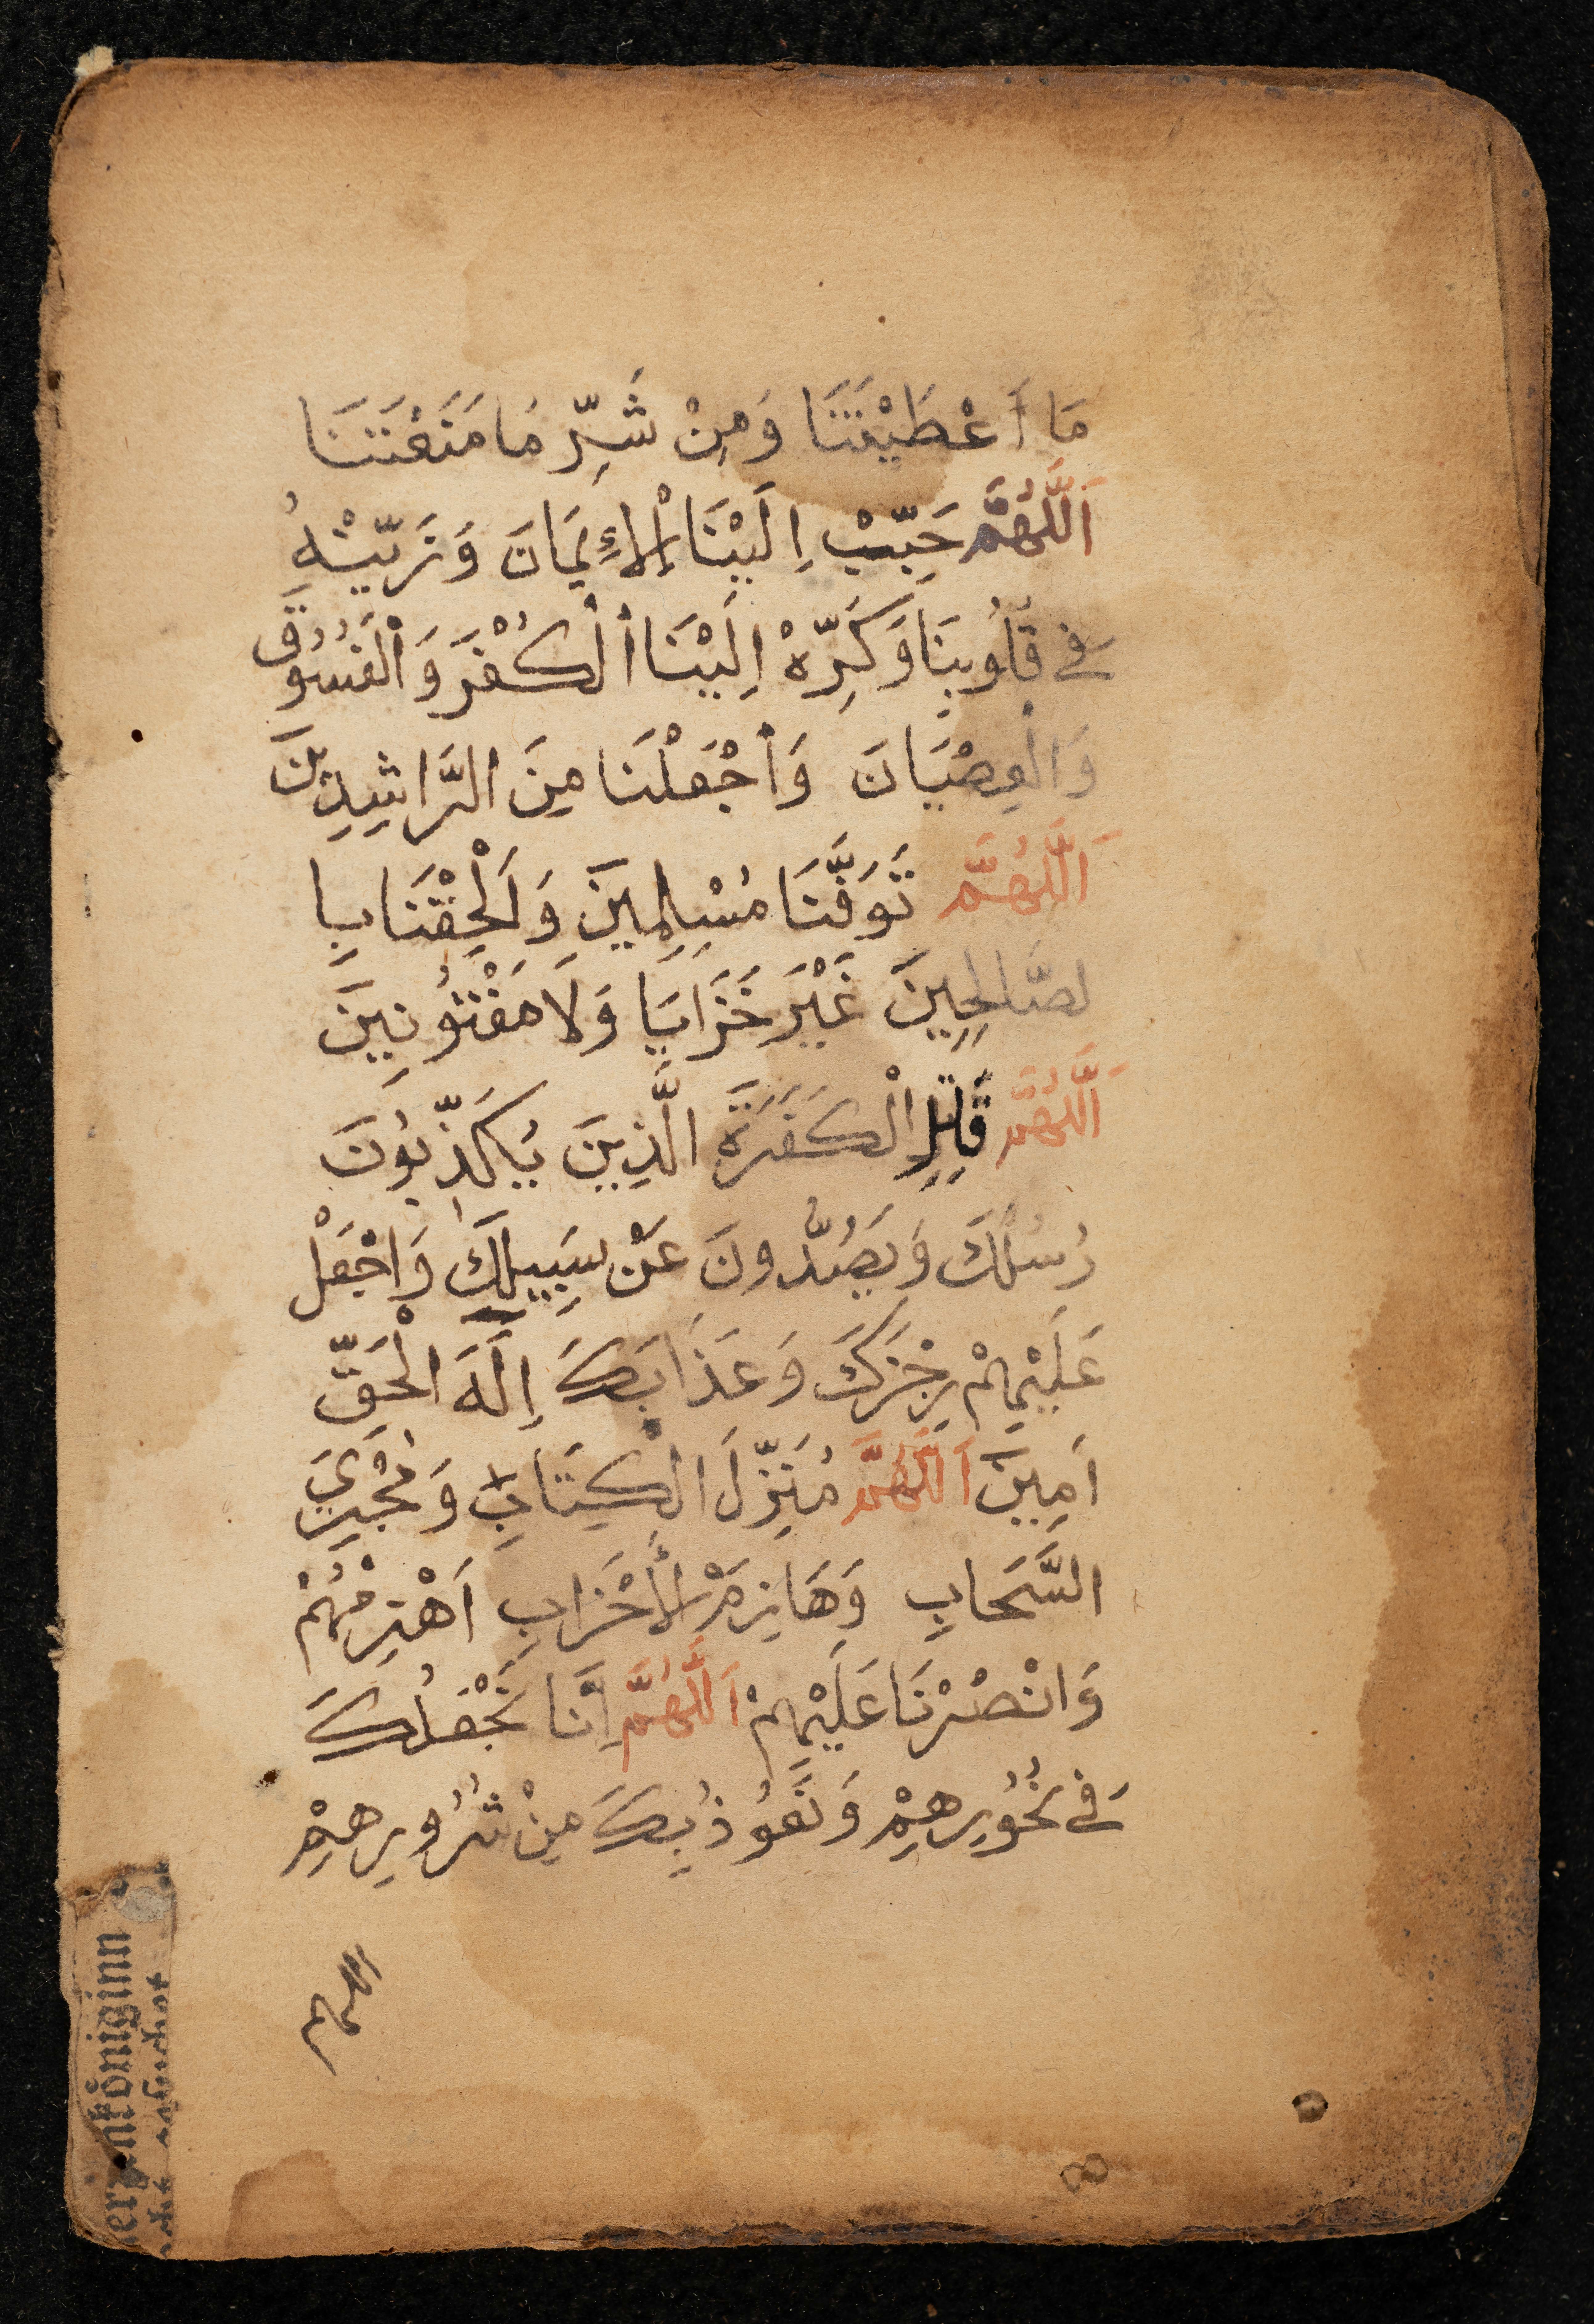 مَا اَعْطَيْتَنَا وَمِنْ شَرِّ مَا مَنَعْتَنَا
اَللَّهُمَّ حَبِّبْ اِلَيْنَا الْإِيمَانَ وَزَيِّنْهُ
فِي قُلُوبِنَا وَكَرِّهْ اِلَيْنَا الْكُفْرَ وَالْفُسُوقَ
وَالْعِصْيَانَ وَاجْعَلْنَا مِنَ الرَّاشِدِينَ
اَللَّهُمَّ تَوَفَّنَا مُسْلِمِينَ وَاَلْحِقْنَا بِا
لصَّالِحِينَ غَيْرَ خَزَايَا وَلَا مَفْتُونِينَ
اَللَّهُمَّ قَاتِلِ الْكَفَرَةَ الَّذِينَ يُكَذِّبُونَ
رُسُلَكَ وَيَصُدُّونَ عَنْ سَبِيلِكَ وَاجْعَلْ
عَلَيْهِمْ رِجْزَكَ وَعَذَابَكَ إِلَهَ الْحَقِّ
اَمِينَ اَللَّهُمَّ مُنَزِّلَ الْكِتَابِ وَمُجْرِيَ
السَّحَابِ وَهَازِمَ الْأَحْزَابِ اَهْزِمْهُمْ
وَانْصُرْنَا عَلَيْهِمْ اَللَّهُمَّ اِنَّا نَجْعَلُكَ
فِي نُحُورِهِمْ وَنَعُوذُ بِكَ مِنْ شُرُورِهِمْ
اللهم
erzenköniginn